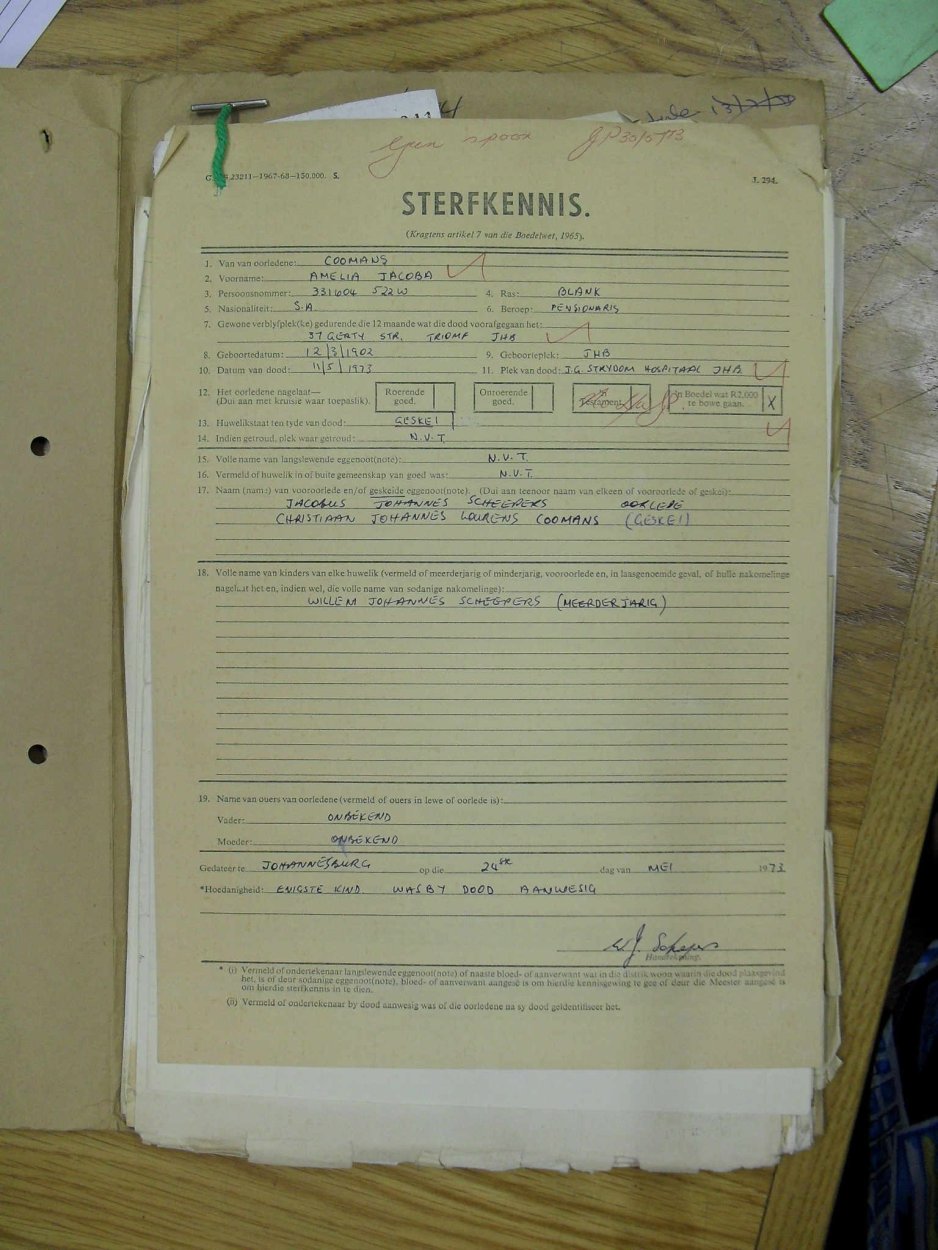 Geen spoor JP 30/5/73
G.P.-S.23211—1967-68—150,000. S. J. 294.
STERFKENNIS.
(Kragtens artikel 7 van die Boedelwet, 1965).
1. Van van oorledene: COOMANS
2. Voorname: AMELIA JACOBA
3. Persoonsnommer: 331604 522W 4. Ras: BLANK
5. Nasionaliteit: S.A. 6. Beroep: PENSIONARIS
7. Gewone verblyfplek(ke) gedurende die 12 maande wat die dood voorafgegaan het:
37 GERTY STR. TRIOMF JHB
8. Geboortedatum: 12/3/1902 9. Geboorteplek: JHB
10. Datum van dood: 11/5/1973 11. Plek van dood: J.G. STRYDOM HOSPITAAL JHB
12. Het oorledene nagelaat— Roerende Onroerende 'n 'n Boedel wat R2,000
(Dui aan met kruisie waar toepaslik). goed. goed. Testament. te bowe gaan. X
13. Huwelikstaat ten tyde van dood: GESKEI
14. Indien getroud, plek waar getroud: N.V.T.
15. Volle name van langslewende eggenoot(note): N.V.T.
16. Vermeld of huwelik in of buite gemeenskap van goed was: N.V.T.
17. Naam (name) van vooroorlede en/of geskeide eggenoot(note). (Dui aan teenoor naam van elkeen of vooroorlede of geskei):
JACOBUS JOHANNES SCHEEPERS OORLEDE
CHRISTIAAN JOHANNES LOURENS COOMANS (GESKEI)
18. Volle name van kinders van elke huwelik (vermeld of meerderjarig of minderjarig, vooroorlede en, in laasgenoemde geval, of hulle nakomelinge
nagelaat het en, indien wel, die volle name van sodanige nakomelinge):
WILLEM JOHANNES SCHEEPERS (MEERDERJARIG)
19. Name van ouers van oorledene (vermeld of ouers in lewe of oorlede is):
Vader: ONBEKEND
Moeder: ONBEKEND
Gedateer te JOHANNESBURG op die 24ste dag van MEI 1973
*Hoedanigheid: ENIGSTE KIND. WAS BY DOOD AANWESIG
W.J. Schepers
Handtekening.
* (i) Vermeld of ondertekenaar langslewende eggenoot(note) of naaste bloed- of aanverwant wat in die distrik woon waarin die dood plaasgevind
het, is of deur sodanige eggenoot(note), bloed- of aanverwant aangesê is om hierdie kennisgewing te gee of deur die Meester aangesê is
om hierdie sterfkennis in te dien.
(ii) Vermeld of ondertekenaar by dood aanwesig was of die oorledene na sy dood geïdentifiseer het.